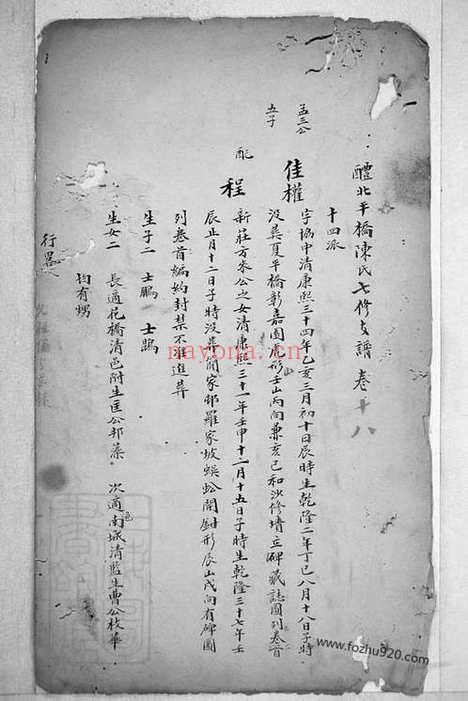 醴北平橋陳氏七修支譜 卷十八
十四派
孟三公
五子
佳權 字協中清康熙三十四年乙亥三月初十日辰時生乾隆二年丁巳八月十八日子時
沒葬夏平橋彰嘉園虎形壬山丙向兼亥巳和沙修墳立碑藏誌圖列卷首
配
程 新莊方來公之女清康熙三十一年壬申十二月十五日子時生乾隆三十七年壬
辰正月十二日子時沒葬閻家邨羅家坡蜈蚣開鉗形辰山戌向有碑圖
列卷首編約封禁不准進葬
生子二 士鵬 士鵾
生女二 長適花橋清邑附生匡公邦藻 次適南城清監生曹公枚華
均有甥
行畧
nayona.cn
www.fozhu920.com